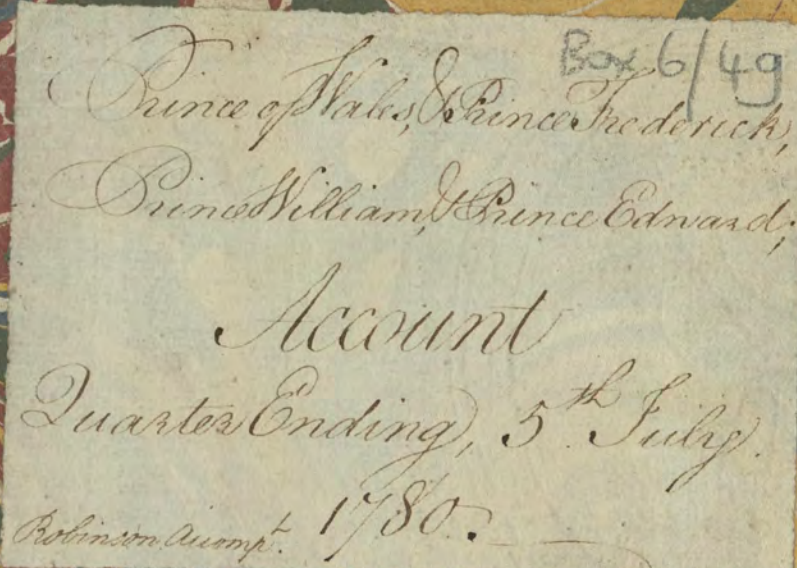 Box 6/49
Prince of Wales, & Prince Frederick,
Prince William, & Prince Edward;
Account
Quarter Ending, 5th July.
1780.
Robinson Accompt.